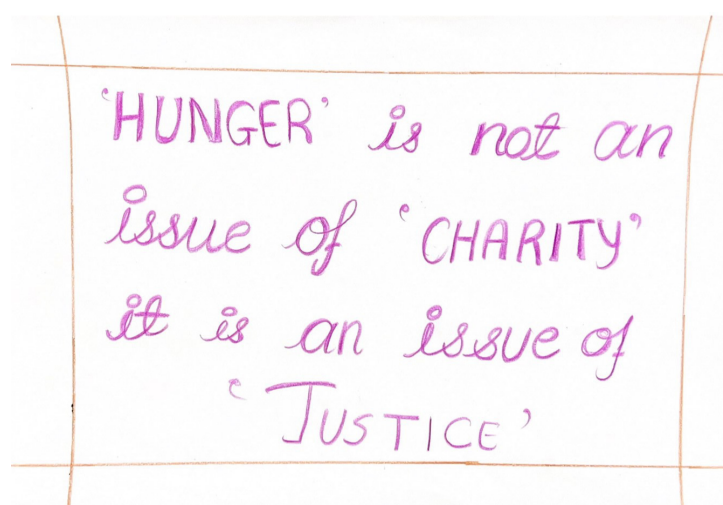 ‘HUNGER’ is not an
issue of ‘CHARITY’
it is an issue of
‘JUSTICE’